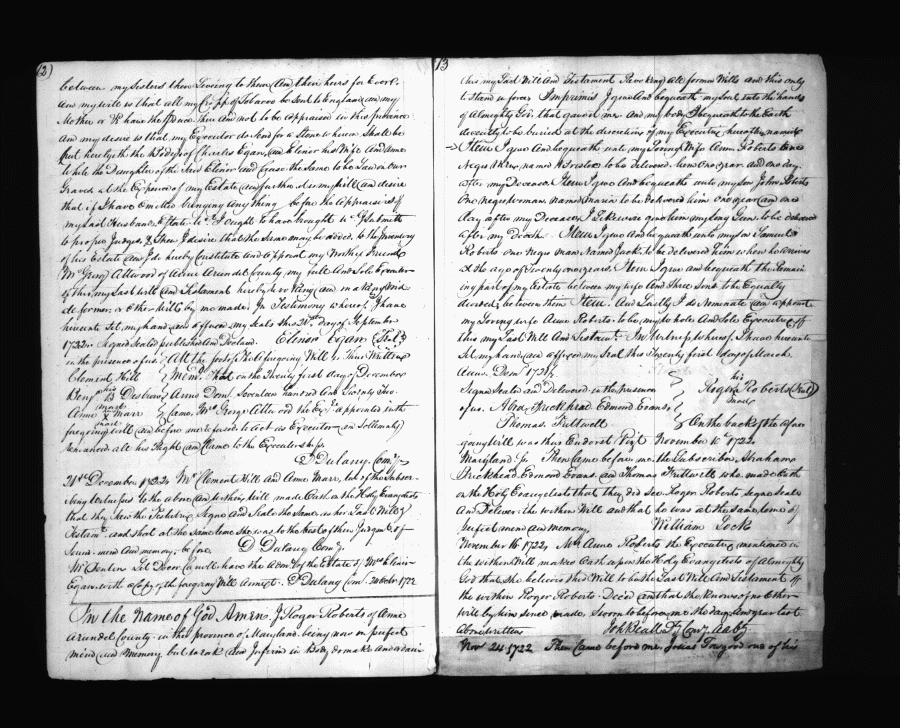 12)
between my Sisters them Living to them And their heirs for Ever.
And my will is that all my Cropp of Tobacco be Sent to England and my
Mother to have the Produce thereof and not to be appraised in this province
And my desire is that my Executor do Send for a Stone to when Shall be
put hereyeth the Bodys of Charles Egan, and Elinor his Wife And Anne
White the Daughter of the Said Elinor and Cause the Same to be Laid on our
Graves at the Expence of my Estate and further it is my will and desire
that if I have omitted bringing Anything before the Appraisers of
my last Husbands Estate wch. I ought to have brought wch. I Submitt
to proper Judges, & then I desire that the same may be added to the Inventory
of his Estate and I do hereby Constitute and appoint my Worthy Friend
Mr. George Attwood of Anne Arundel County my full And Sole Executor
of this my Last will and Testament hereby revoking and making void
all former or other wills by me made. In Testimony whereof I have
hereunto Set my hand and affixed my Seale this 26th. day of September
1722. Signed Sealed published And Declared Elinor Egan (Seal)
in the presence of us All the foot of the aforegoing Will is Thus Written
Clement Hill Memd. That on the Twenty first day of December
Benja. Dustrow Anno Dom. Seventeen hundred and Twenty Two
mark
Anne X Marr Came Mr. George Attwood the Exr. appointed in the
mark
foregoing will and before me refused to Act as Executor and Sollemnly
renounced all his Right and Claime to the Executorship.
D Dulany Comy.
21st December 1722. Mr. Clement Hill and Anne Marr, two of the Subscr-
ibing Witnesses to the above and within will made Oath on the Holy Evangelists
that they Saw the Testatrix Signe and Seale the Same as her Last Will &
Testamt. and that at the Same time She was to the best of their Judgmt. of
Sound mind and memory, before D Dulany Comy.
Egan with a Copy of the foregoing Will Annext. D Dulany Com.
In the Name of God Amen. I Roger Roberts of Anne
Arundel County in the province of Maryland being now in perfect
mind and Memory but weak and Infirm in Body do make and ordain
13
this my Last Will And Testament Revoking all former Wills and this only
to Stand in force. Imprimis I give And bequeath my Soul into the hands
of Almighty God that gave it me and my body I bequeath to the Earth
decently to be buried at the discretion of my Executrix hereafter named
Item I give And bequeath unto my Loving Wife Ann Roberts One
Negro Man named Bristoe to be delivered her one year and one day
after my Decease. Item I give And bequeath unto my Son John Roberts
One Negro woman named Maria to be delivered him one year and one
day after my Decease. I Likewise give him my long Gun to be delivered
after my Death. Item I give And bequeath unto my Son Samuel
Roberts one Negro man Named Jack, to be delivered him when he arrives
at the age of Twenty one years. Item I give and bequeath the Remain
ing part of my Estate between my wife And three Sons to be Equally
divided between them. Item. And Lastly I do Nominate and appoint
my Loving wife Anne Roberts to be my whole And Sole Executrix of
this my Last Will And Testamt. In Witness whereof, I have hereunto
Set my hand and affixed my Seal this Twenty first day of March
Anno. Dom. 1721/2
his
Signed Sealed and Delivered in the presence Roger R Roberts (Seal)
mark
of us. Abra. Birckhead Edmond Evans
Thomas Frittwell On the back of the afore
going will was thus Endorst Vizt. November 16th 1722.
Maryland Ss. Then Came before me the Subscriber Abraham
Birckhead Edmond Evans and Thomas Frittwell who made Oath
on the Holy Evangelists that they did See Roger Roberts Signe Seale
And Deliver the within Will and that he was at the Same time of
perfect mind and memory William Lock
November 16. 1722, Mrs. Anne Roberts the Executrix mentioned in
the within Will makes Oath upon the Holy Evangelists of Almighty
God that she believes this Will to be the Last Will And Testament of
the within Roger Roberts Decd. and that she knows of no Other
will by him Since made. Sworn to before me the day And year last
above written Joh: Beall Dy. Comy.
Nov 24 1722 Then Came before me Josias Towgood one of his